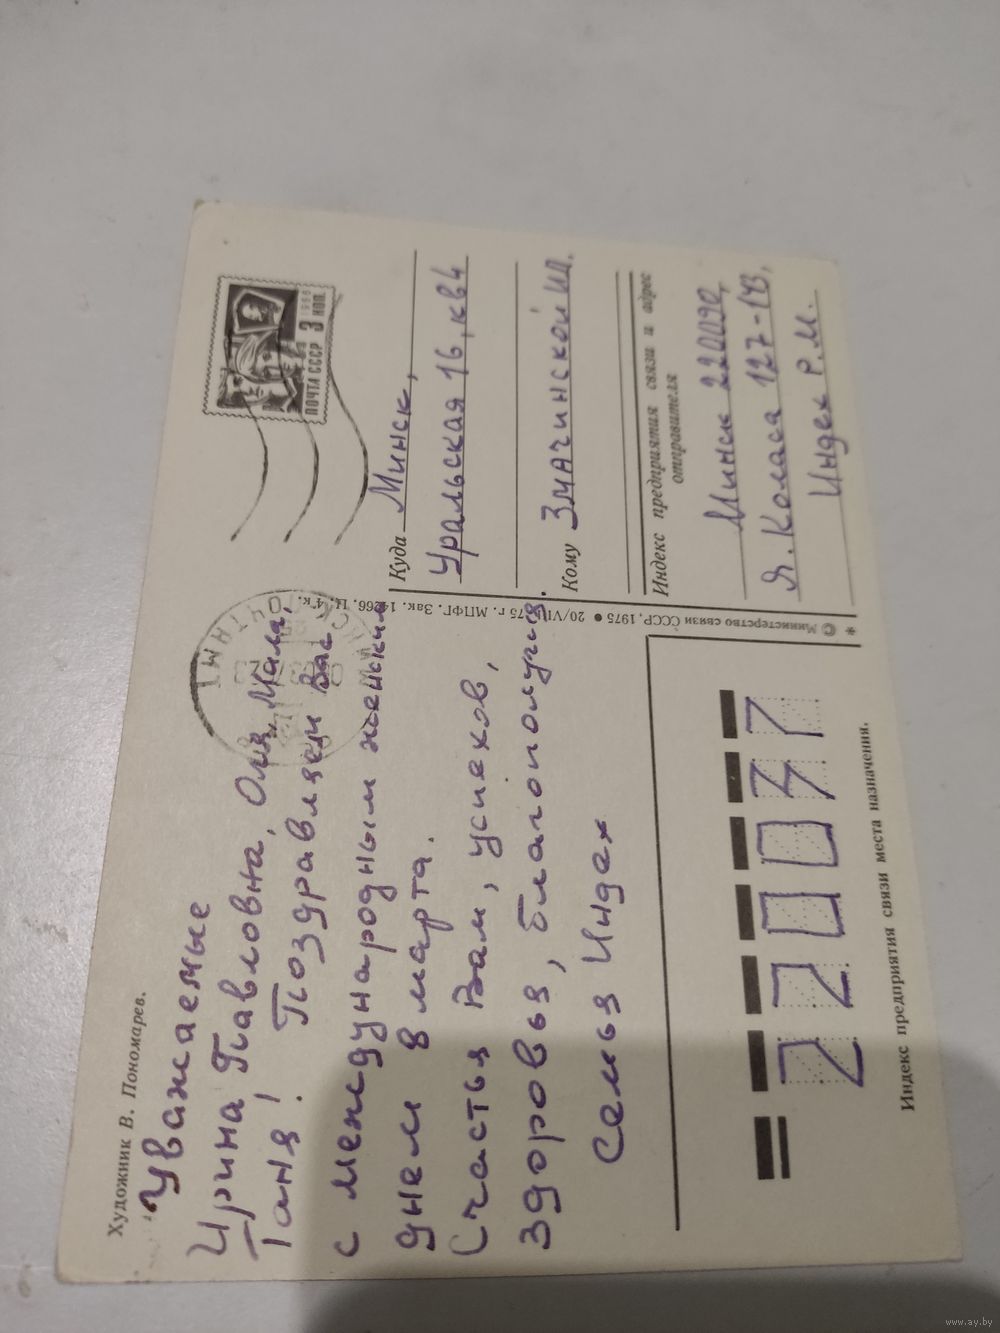 Художник В. Пономарев.
Уважаемые
Ирина Павловна, Оля, Мама,
Таня! Поздравляем Вас
с международным женским
днем 8 марта.
Счастья Вам, успехов,
здоровья, благополучия.
Семья Индех
ПОЧТА СССР 3 КОП.
1966
Куда Минск,
Уральская 16, кв4
Кому Змачинской И.П.
Индекс предприятия связи и адрес
отправителя
Минск 220090,
Я. Коласа 127-113,
Индех Р.М.
© Министерство связи СССР, 1975 • 20/VI 75 г. МПФГ. Зак. 14266. Ц. 4 к.
220047
Индекс предприятия связи места назначения.
www.ay.by